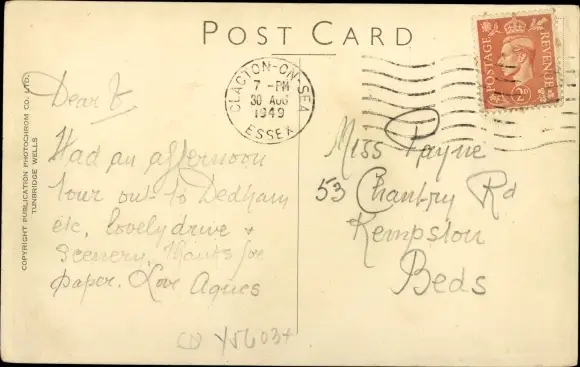 POST CARD
COPYRIGHT PUBLICATION PHOTOCHROM CO. LTD.
TUNBRIDGE WELLS
CLACTON-ON-SEA
7 - PM
30 AUG
1949
ESSEX
POSTAGE
REVENUE
2D
Dear
Had an afternoon
tour out to Dedham
etc, lovely drive +
Scenery. Thanks for
paper. Love Agnes
Miss Payne
53 Chantry Rd
Kempston
Beds
Y5603+